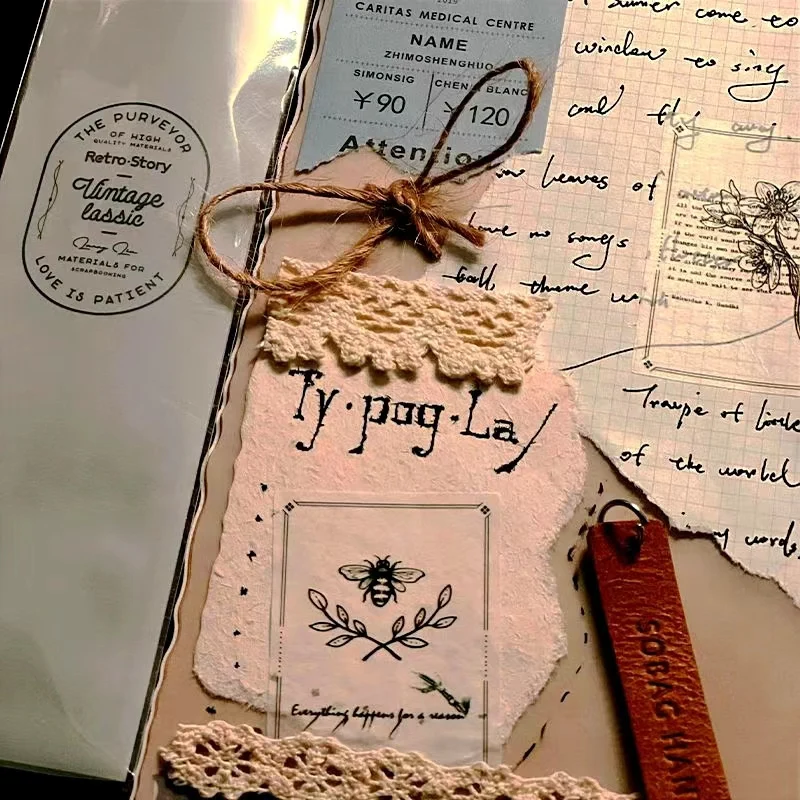 THE PURVEYOR
OF HIGH
QUALITY MATERIALS
Retro·Story
Vintage
lassic
MATERIALS FOR
SCRAPBOOKING
LOVE IS PATIENT
2019
CARITAS MEDICAL CENTRE
NAME
ZHIMOSHENGHUO
SIMONSIG
CHEN BLANC
¥90
¥120
Attention
summer come to
window to sing
and fly away.
leaves of
have no songs
fall, there
Troupe of little
of the world
my words.
Ty·pog·La/
Everything happens for a reason
SOBAG HAN